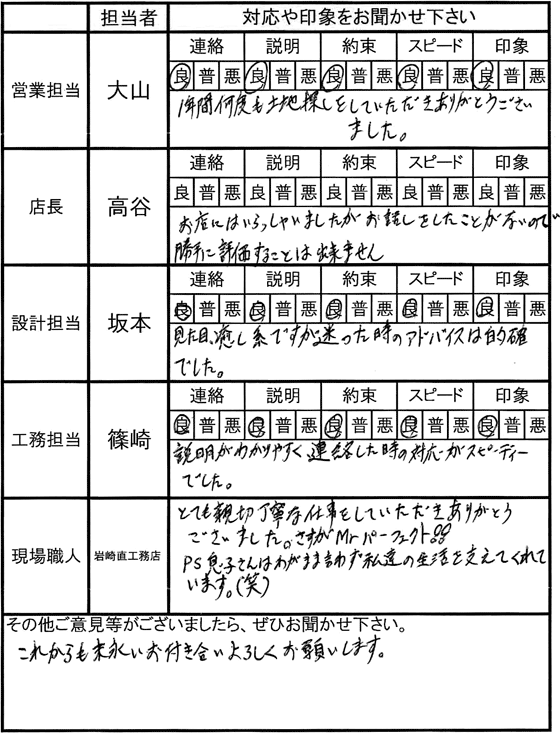 担当者 対応や印象をお聞かせ下さい
営業担当 大山
連絡 説明 約束 スピード 印象
良 普 悪 良 普 悪 良 普 悪 良 普 悪 良 普 悪
1年間何度も土地探しをしていただきありがとうござい
ました。
店長 高谷
連絡 説明 約束 スピード 印象
良 普 悪 良 普 悪 良 普 悪 良 普 悪 良 普 悪
お店にはいらっしゃいましたがお話しをしたことがないので
勝手に評価することは出来ません
設計担当 坂本
連絡 説明 約束 スピード 印象
良 普 悪 良 普 悪 良 普 悪 良 普 悪 良 普 悪
見た目、癒し系ですが迷った時のアドバイスは的確
でした。
工務担当 篠崎
連絡 説明 約束 スピード 印象
良 普 悪 良 普 悪 良 普 悪 良 普 悪 良 普 悪
説明がわかりやすく連絡した時の対応がスピーディー
でした。
現場職人 岩崎直工務店
とても親切丁寧な仕事をしていただきありがとう
ございました。さすがMrパーフェクト!!
PS息子さんはわがまま言わず私達の生活を支えてくれて
います。(笑)
その他ご意見等がございましたら、ぜひお聞かせ下さい。
これからも末永いお付き合いよろしくお願いします。